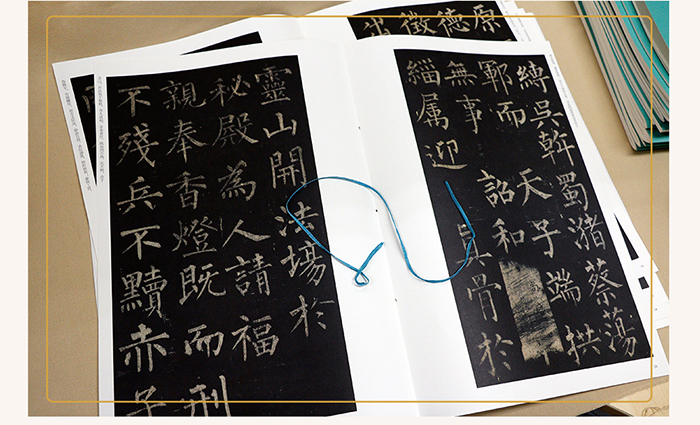 原
德
徵
出
縛吳斡蜀瀦蔡蕩
鄆而天子端拱
無事詔和
緇属迎真骨於
靈山開法場於
秘殿為人請福
親奉香燈既而刑
不殘兵不黷赤子